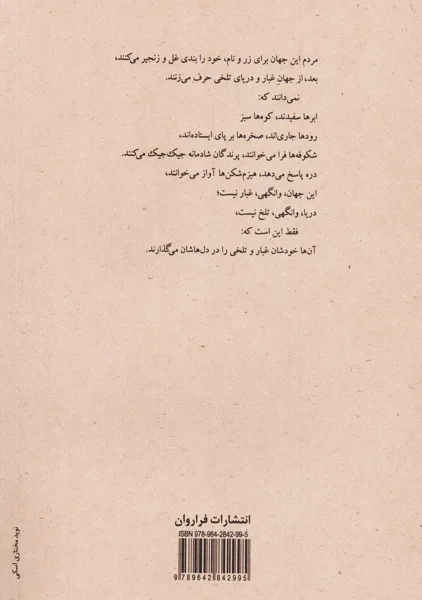 مردم این جهان برای زر و نام، خود را بندی غل و زنجیر می‌کنند،
بعد، از جهان غبار و دریای تلخی حرف می‌زنند.
نمی‌دانند که:
ابرها سفیدند، کوه‌ها سبز
رودها جاری‌اند، صخره‌ها بر پای ایستاده‌اند،
شکوفه‌ها فرا می‌خوانند، پرندگان شادمانه جیک‌جیک می‌کنند.
دره پاسخ می‌دهد، هیزم‌شکن‌ها آواز می‌خوانند،
این جهان، وانگهی، غبار نیست؛
دریا، وانگهی، تلخ نیست،
فقط این است که:
آن‌ها خودشان غبار و تلخی را در دل‌هاشان می‌گذارند.
انتشارات فراروان
ISBN 978-964-2842-99-5
9789642842995
نوید مختاری اسکی